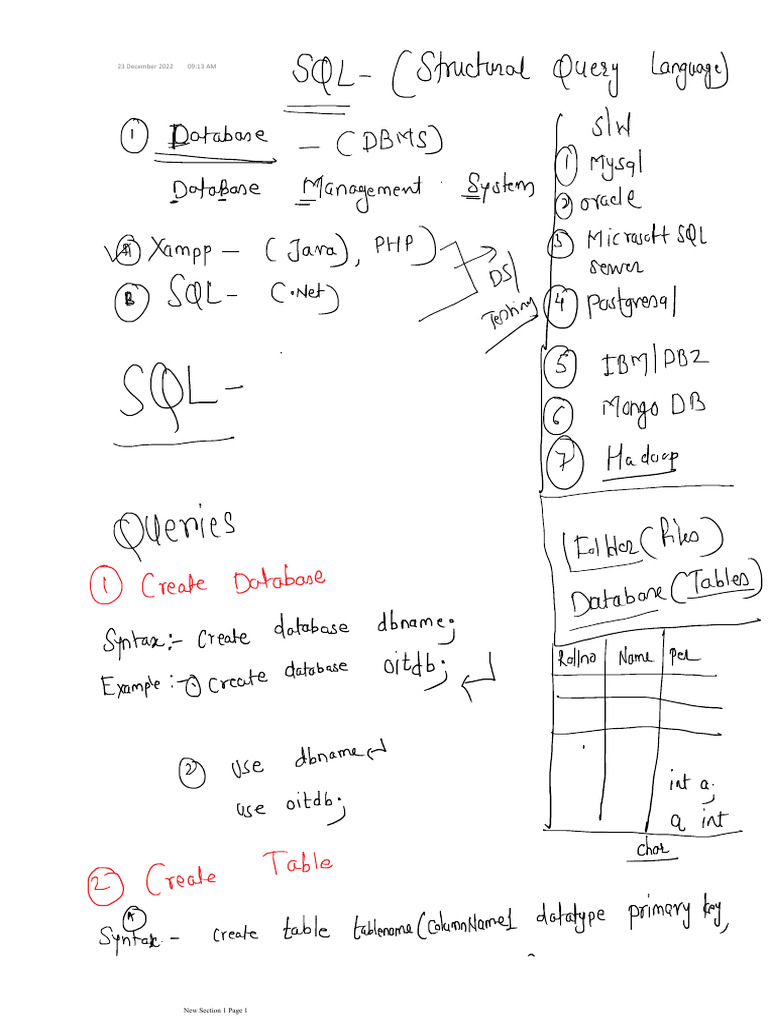 23 December 2022 09:13 AM
SQL - (Structural Query Language)
① Database - (DBMS)
DataBase Management System
Ⓐ Xampp - (Java), PHP)
Ⓑ SQL - (.Net)
DS/
Testing
SQL -
S/W
① Mysql
② oracle
③ Microsoft SQL
server
④ Postgresql
⑤ IBM/DB2
⑥ Mongo DB
⑦ Hadoop
Folder (files)
Database (Tables)
Rollno Name Per
int a;
a int
char
Queries
① Create Database
Syntax:- Create database dbname;
Example:- ① Create database oitdb;
② use dbname
use oitdb;
② Create Table
Ⓐ
Syntax - create table tablename(ColumnName1 datatype primary key,
New Section 1 Page 1